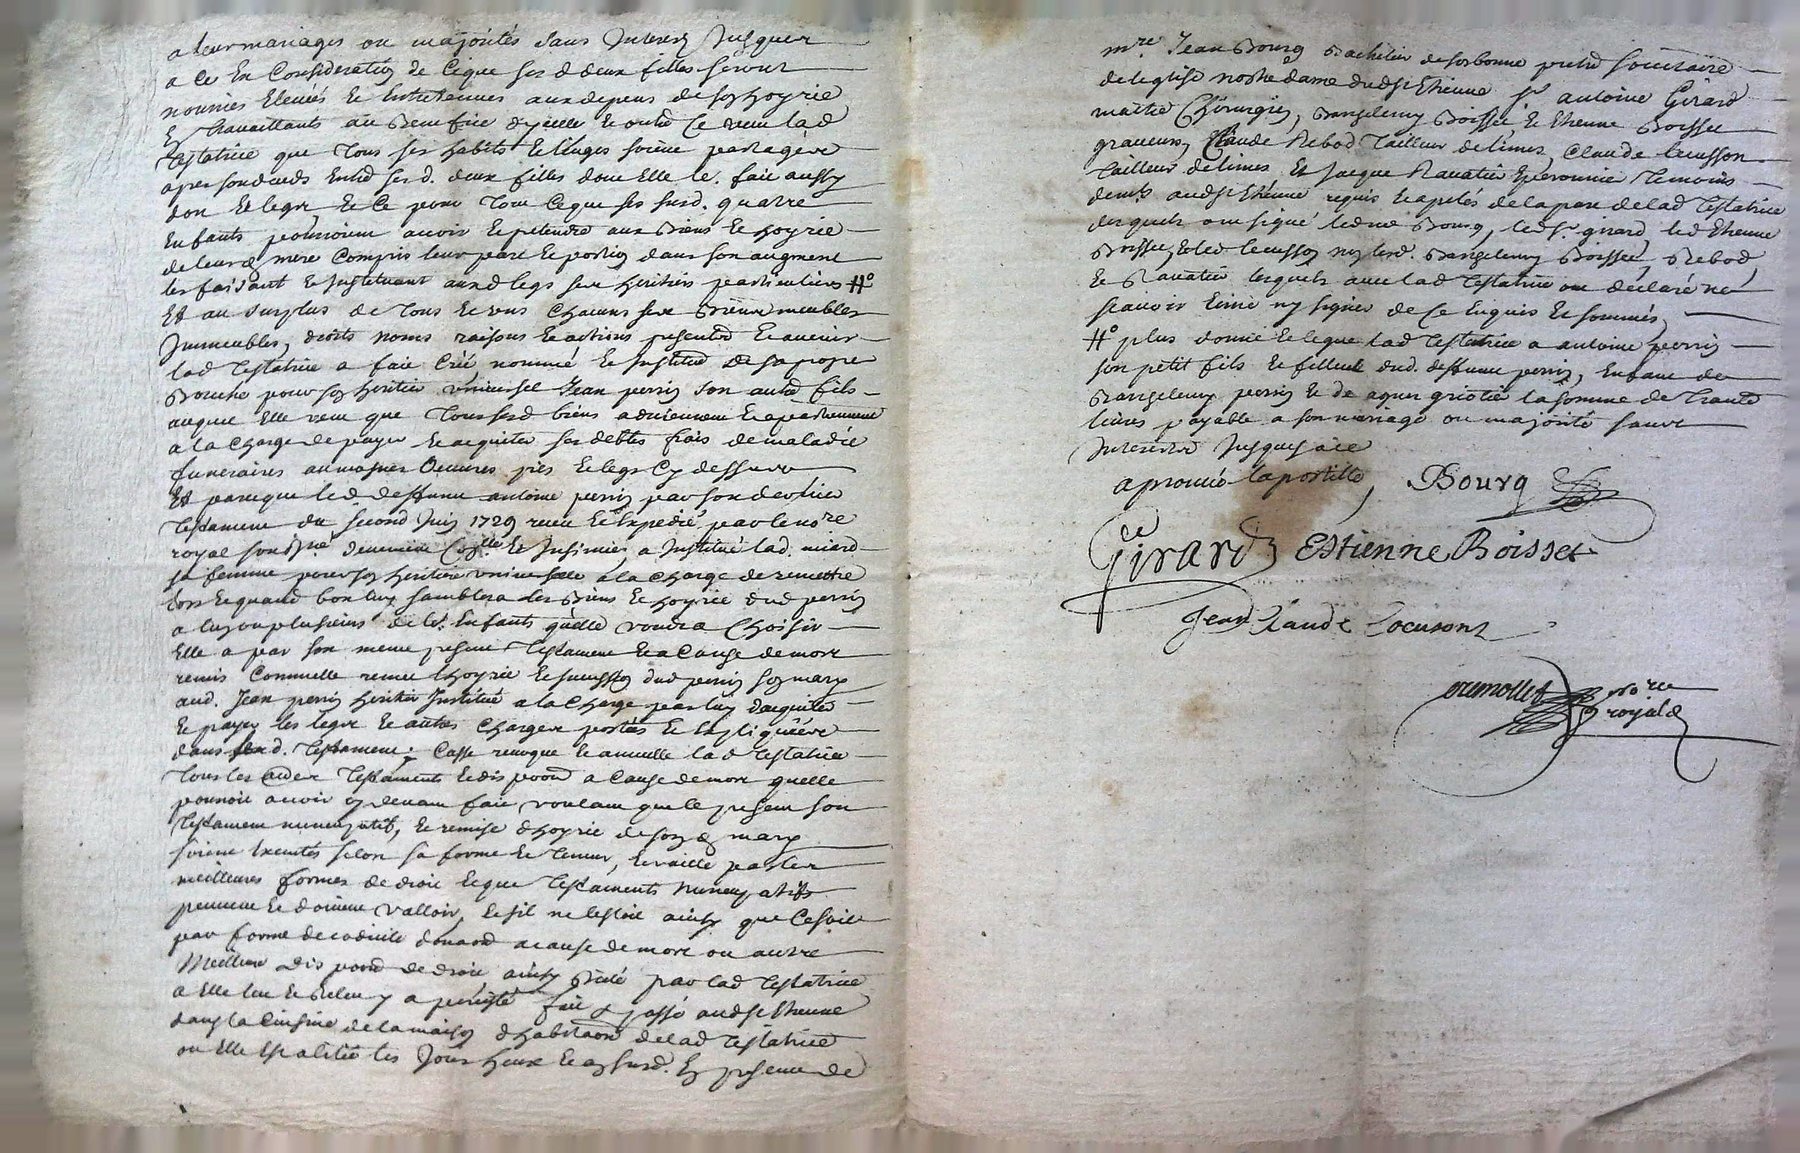 a leur mariages ou majorités sans Interest Jusques
a Ce En Consideration de Ceque ses d deux filles seront
nourries Elevées Et Entretenues aux depens de son hoyrie
En travaillants au Benefice dycelle Et outre Ce veut lad
Testatrice que tous ses habits Et linges soient partagées
apres son deceds Entre ses d. deux filles dont Elle le. fait aussy
don Et legat, Et Ce pour tout Ceque ses susd. quatre
Enfants pourroient avoir Et pretendre aux Biens Et hoyrie
de leurd mere Compris leur part Et portion dans son augment
les faisant Et Instituant auxd legs ses heritiers particuliers #o
Et au surplus de tous Et uns Chacuns ses Biens meubles
Immeubles, droits noms raisons Et actions presents Et avenir
lad Testatrice a fait Créé nommé Et Institué De sa propre
Bouche pour son heritier universel Jean perrin son autre fils
auquel Elle veut que tous sesd biens adviennent Et apartiennent
a la Charge de payer Et acquiter ses debtes frais de maladie
funeraires aumosnes Oeuvres pies Et legs Cy dessus
Et parceque led deffunt antoine perrin par son dernier
Testament du second Juin 1729 receu Et Expedié par le nore
royal soussigné deuement Conllé Et Insinué, a Institué lad. miard
sa femme pour son heritiere universelle a la Charge de remettre
lors Et quand bon luy semblera les Biens Et hoyrie dud perrin
a lun ou plusieurs de les. Enfants quelle voudra Choisir
Elle a par son meme present Testament Et a Cause de mort
remis Comme elle remet lhoyrie Et succession dud perrin son mary
aud. Jean perrin heritier Institué a la Charge par luy dacquiter
Et payer les legs Et autres Charges portés Et Expliquées
dans sond. Testament. Casse revoque Et annulle lad Testatrice
tous les autres Testaments Et dispoons a Cause de mort quelle
pourroit avoir cy devant fait voulant que le present son
Testament nuncupatif, Et remise dhoyrie de sond mary
soient Executés selon sa forme Et teneur, Et vaille par les
meilleures formes de droit Et que Testaments nuncupatifs
peuvent Et doivent valloir, Et sil ne lestoit ainsy que Ce soit
par forme de codicile donaon a cause de mort ou autre
Meilleure dispoon de droit ainsy Dicté par lad Testatrice
a Elle leu Et Releu y a persisté fait & passé aud St Etienne
dans la Cuisine de la maison dhabitaon de lad Testatrice
ou Elle Est alitée les Jour heure Et an susd. En presence de
mre Jean Bourg Bachelier de sorbonne pretre societaire
de leglise nostre dame dud St Etienne sr antoine Girard
maitre Chirurgien, Barthelemy Boisset, Et Etienne Boisset
graveurs, Claude Rebod Tailleur de limes, Claude Locusson
tailleur de limes Et Jacque Ravatier Eperonnier temoins
demts aud St Etienne requis Et apelés de la part de lad Testatrice
lesquels ont signé led mre Bourg, led sr. girard, led Etienne
Boisset, Et led locusson non lesd. Barthelemy Boisset, Rebod,
Et Ravatier lesquels avec lad Testatrice ont declaré ne
scavoir Ecrire ny signer de Ce Enquis Et sommés,
#o plus donne Et legue lad Testatrice a antoine perrin
son petit fils Et filleul dud. deffunt perrin, Enfant de
Barthelemy perrin Et de agnes griotier la somme de trante
livres payable a son mariage ou majorité sans
Interest Jusques a Ce
aprouvé lapostille, Bourg
Girard Estienne Boisset
Jean Claude Locusont
Cremollet nore
royal